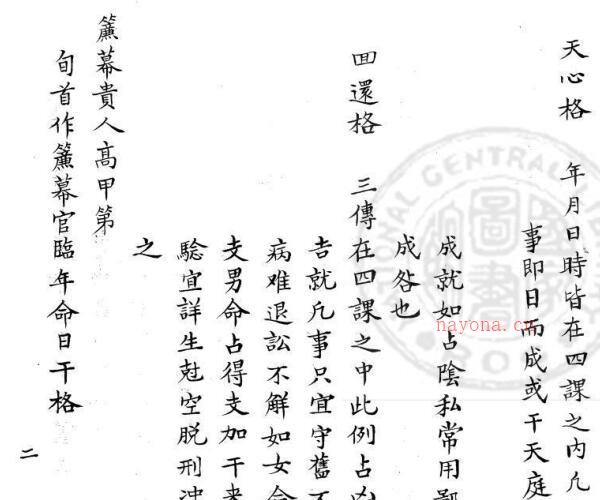 天心格　年月日時皆在四課之内凡
事即日而成或干天庭
成就如占陰私常用
成咎也
回還格　三傳在四課之中此例占凶
吉就凡事只宜守舊不
病难退訟不解如女命
支男命占得支加干来
驗宜詳生尅空脱刑冲
之
簾幕貴人高甲第
旬首作簾幕官臨年命日干格
二
NATIONAL CENTRAL LIBRARY
nayona.cn